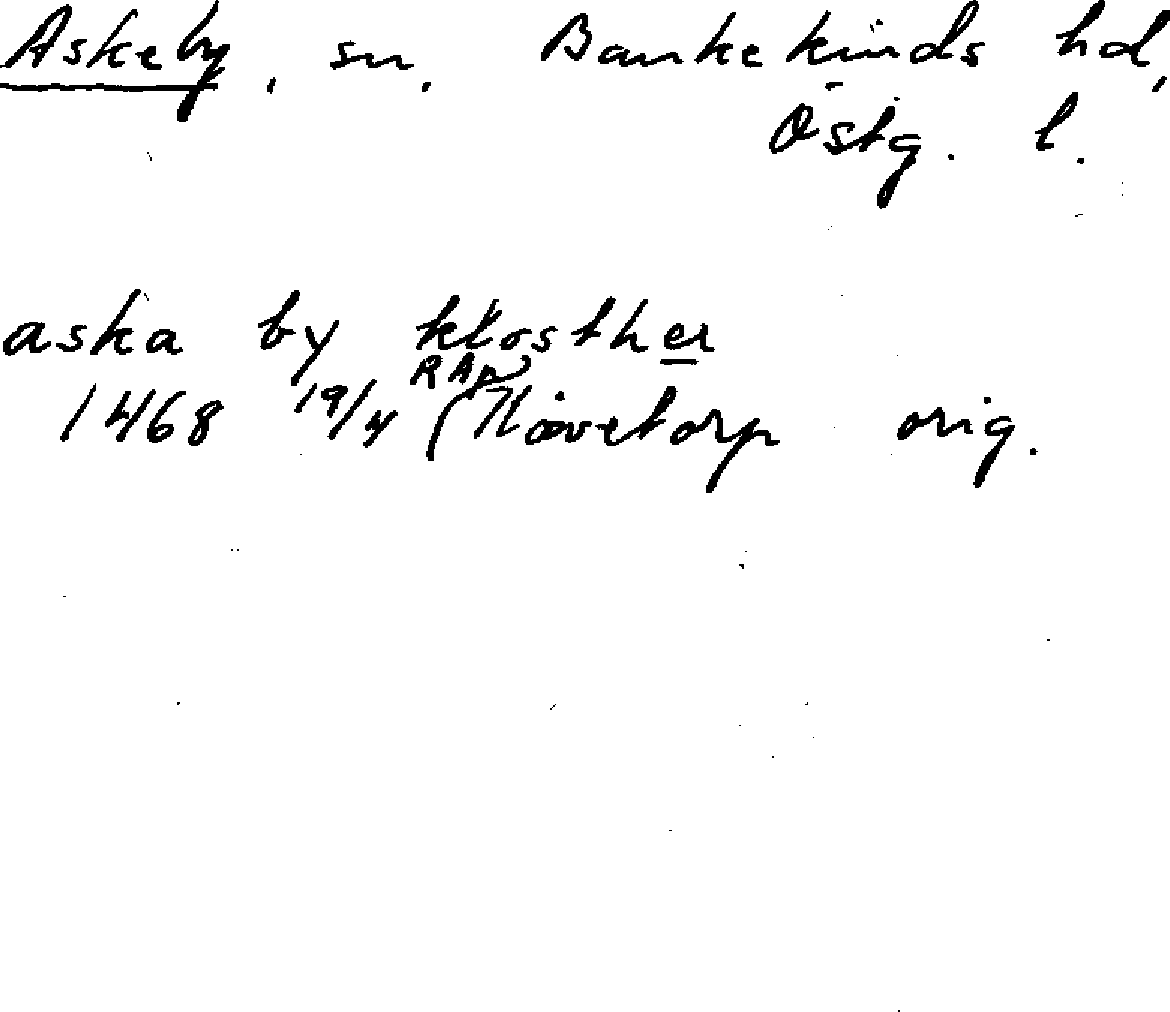 Askeby, sn. Bankekinds hd,
Östg. l.
aska by klosther
RAp
1468 19/4 (Hövetorp orig.